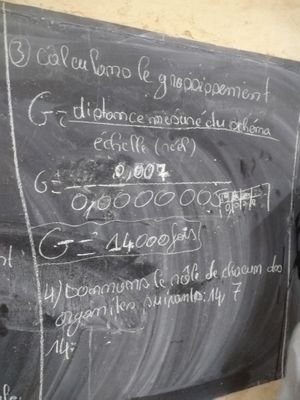 ③ Calculons le grossissement
G = distance mesuré du schéma
échelle (réel)
G = 0,007
0,000000
G = 14.000 fois
4) Donnons le rôle de chacun des
organites suivants: 14, 7
14: